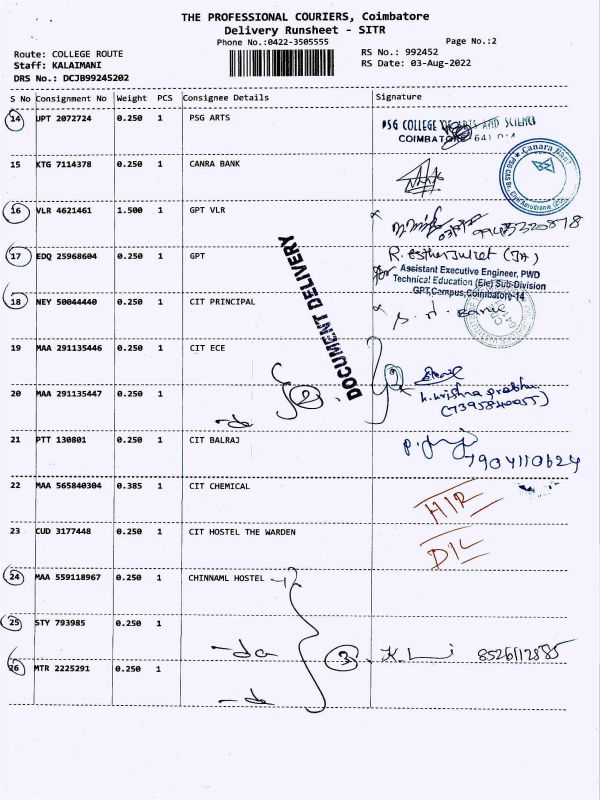 THE PROFESSIONAL COURIERS, Coimbatore
Delivery Runsheet - SITR
Phone No.:0422-3505555
Page No.:2
Route: COLLEGE ROUTE
RS No.: 992452
Staff: KALAIMANI
RS Date: 03-Aug-2022
DRS No.: DCJB99245202
S No Consignment No Weight PCS Consignee Details Signature
14 UPT 2072724 0.250 1 PSG ARTS
PSG COLLEGE OF ARTS AND SCIENCE
COIMBATORE 641 014
15 KTG 7114378 0.250 1 CANRA BANK
Canara Bank
16 VLR 4621461 1.500 1 GPT VLR
17 EDQ 25968604 0.250 1 GPT
R. Esther Juliet (JA)
for Assistant Executive Engineer, PWD
Technical Education (Ele) Sub-Division
GPT,Campus,Coimbatore-14
DOCUMENT DELIVERY
18 NEY 50044440 0.250 1 CIT PRINCIPAL
19 MAA 291135446 0.250 1 CIT ECE
20 MAA 291135447 0.250 1 -do 2
k. krishna prabhu
(7395840055)
21 PTT 130801 0.250 1 CIT BALRAJ
7904110624
22 MAA 565840304 0.385 1 CIT CHEMICAL
23 CUD 3177448 0.250 1 CIT HOSTEL THE WARDEN
24 MAA 559118967 0.250 1 CHINNAML HOSTEL
25 STY 793985 0.250 1 -do
3 8526112885
26 MTR 2225291 0.250 1 -do